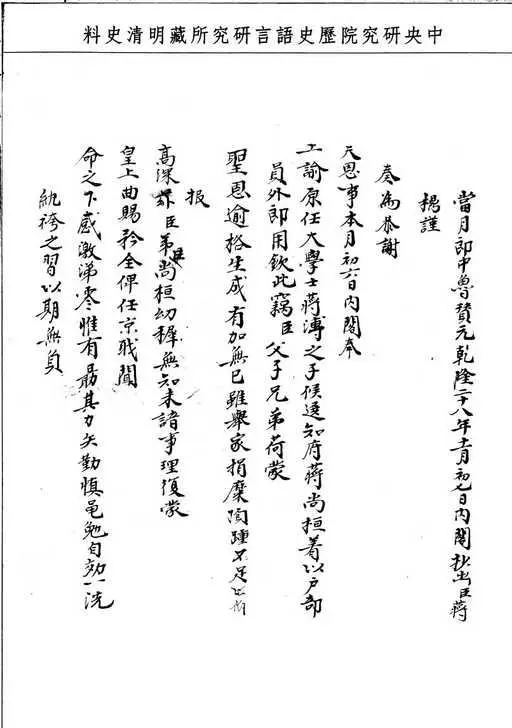 中央研究院歷史語言研究所藏明清史料
當月郎中魯贊元乾隆二十八年十一月初七日內閣抄出臣蔣
謹
奏為恭謝
天恩事本月初六日內閣奉
上諭原任大學士蔣溥之子候選知府蔣尚桓着以戶部
員外郎用欽此竊臣父子兄弟荷蒙
聖恩逾格生成有加無已雖舉家捐糜隕踵不足以仰
报
高深茲臣弟尚桓幼穉無知未諳事理復蒙
皇上曲賜矜全俾任京職聞
命之下感激涕零惟有勗其力矢勤慎黽勉自効一洗
紈袴之習以期無負